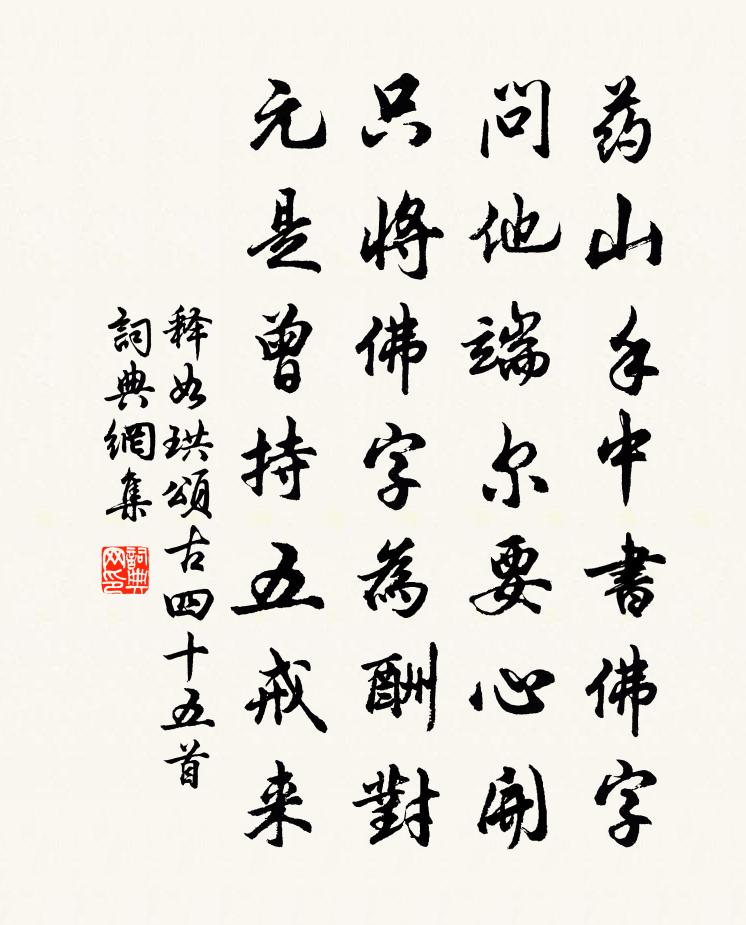 药山手中書佛字
問他端尔要心開
只將佛字為酬對
元是曾持五戒来
释如珙頌古四十五首
詞典網集
詞典网印